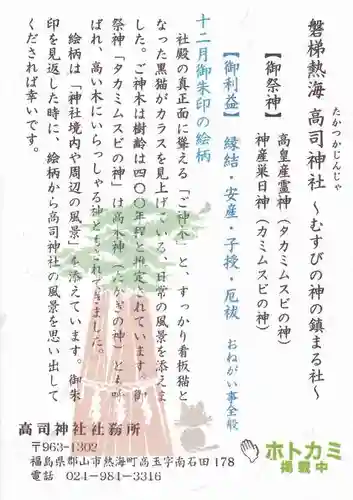 磐梯熱海 高司神社 ～むすびの神の鎮まる社～
たかつかじんじゃ
【御祭神】
高皇産霊神（タカミムスビの神）
神産巣日神（カミムスビの神）
【御利益】 縁結・安産・子授・厄祓 おねがい事全般
十二月御朱印の絵柄
社殿の真正面に聳える「ご神木」と、すっかり看板猫と
なった黒猫がカラスを見上げている、日常の風景を添えま
した。ご神木は樹齢は四〇〇年程と推定されています。御
祭神「タカミムスビの神」は高木神（たかぎの神）とも呼
ばれ、高い木にいらっしゃる神ともされてきました。
絵柄は「神社境内や周辺の風景」を添えています。御朱
印を見返した時に、絵柄から高司神社の風景を思い出して
くだされば幸いです。
高司神社社務所
〒963-1302
福島県郡山市熱海町高玉字南石田 178
電話 024-984-3316
ホトカミ
掲載中